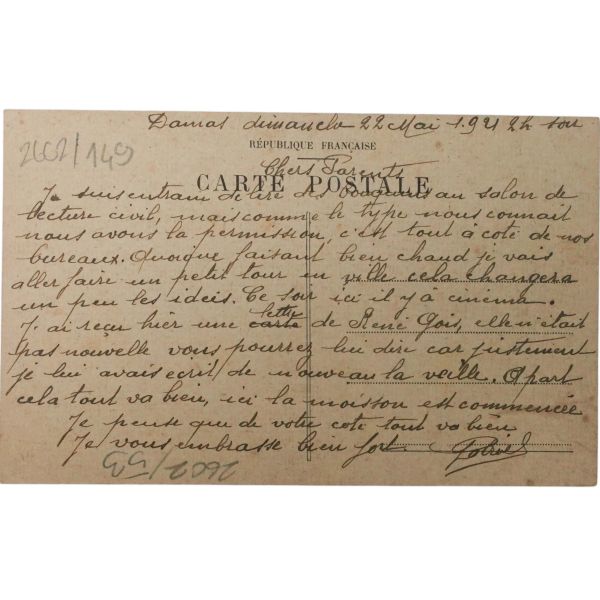 Damas dimanche 22 Mai 1921 2h soir
2602/149
RÉPUBLIQUE FRANÇAISE
Chers Parents
CARTE POSTALE
Je suis entrain de lire des bouquins au salon de
lecture civil, mais comme le type nous connait
nous avons la permission, c'est tout à coté de nos
bureaux. Quoique faisant bien chaud je vais
aller faire un petit tour en ville cela changera
un peu les idéés. Ce soir ici il y a cinéma.
J'ai reçu hier une carte lettre de René Gois, elle n'était
pas nouvelle vous pourrez lui dire car justement
je lui avais écrit de nouveau la veille. Apart
cela tout va bien, ici la moisson est commencée
Je pense que de votre coté tout va bien
Je vous embrasse bien fort
2602/55